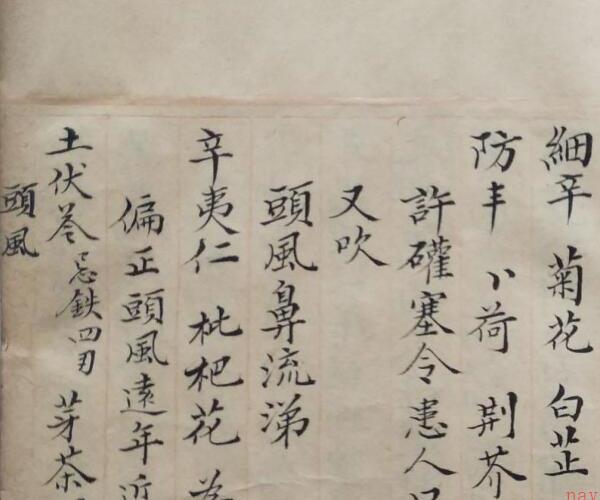 細辛 菊花 白芷
防丰 卜荷 荆芥
許確塞令患人
又吹
頭風鼻流涕
辛夷仁 枇杷花
偏正頭風遠年近
土伏苓忌鉄四刃 芽茶
頭風
nay